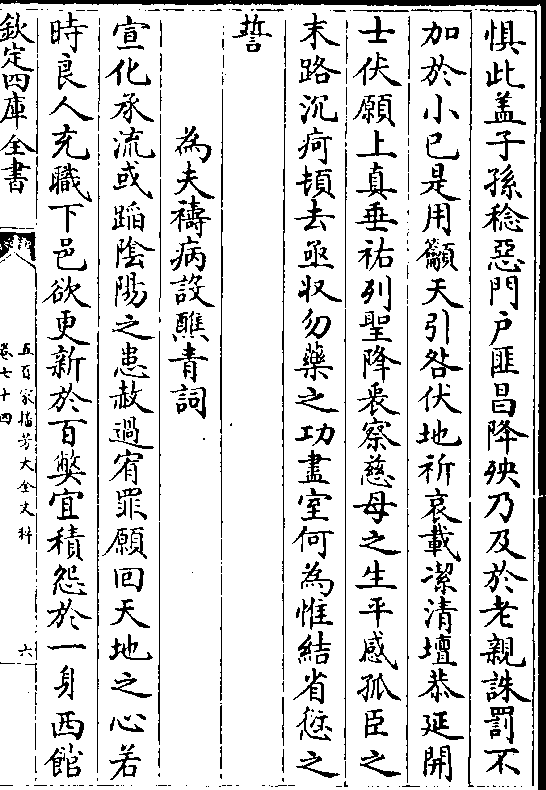 惧此盖子孫稔惡門户匪昌降殃乃及於老親誅罰不
加於小已是用籲天引咎伏地祈哀載潔清壇恭延開
士伏願上真垂祐列聖降衷察慈母之生平感孤臣之
末路沉疴頓去亟収勿藥之功盡室何為惟結省愆之
誓
為夫禱病設醮青詞
宣化承流或蹈陰陽之患赦過宥罪願回天地之心若
時良人充職下邑欲更新於百弊宜積怨於一身西館
欽定四庫全書
五百家播芳大全文粹
卷七十四
六